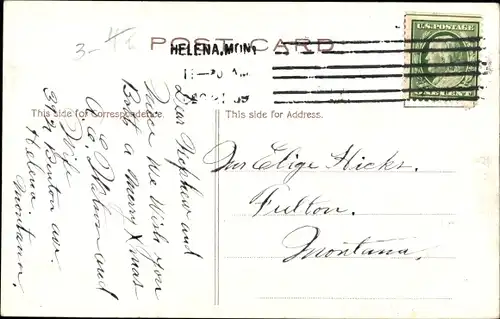 3-42
POST CARD
HELENA, MONT
11-30 AM
U.S. POSTAGE
ONE CENT
This side for Correspondence.
This side for Address.
Dear Nephew and
Niece We Wish you
Both a Merry Xmas
A. C. Watson and
Wife
Benton av.
Helena.
Montana.
Mrs Elige Hicks.
Fulton.
Montana.